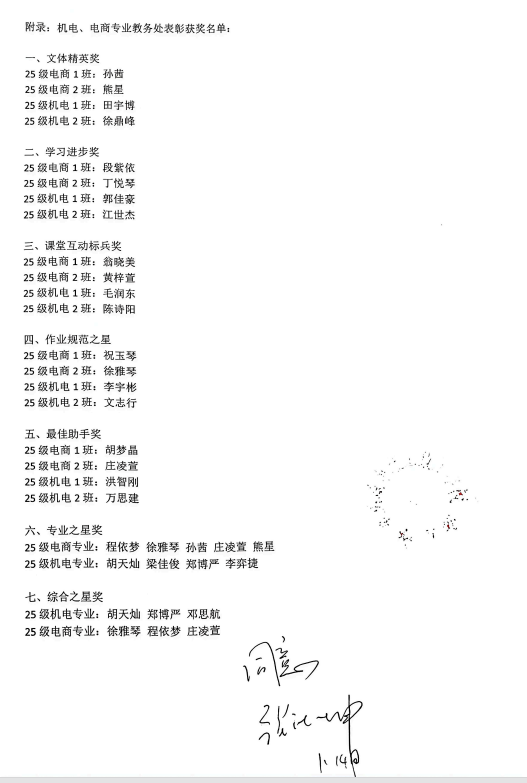 附录：机电、电商专业教务处表彰获奖名单：
一、文体精英奖
25 级电商 1 班：孙茜
25 级电商 2 班：熊星
25 级机电 1 班：田宇博
25 级机电 2 班：徐鼎峰
二、学习进步奖
25 级电商 1 班：段紫依
25 级电商 2 班：丁悦琴
25 级机电 1 班：郭佳豪
25 级机电 2 班：江世杰
三、课堂互动标兵奖
25 级电商 1 班：翁晓美
25 级电商 2 班：黄梓萱
25 级机电 1 班：毛润东
25 级机电 2 班：陈诗阳
四、作业规范之星
25 级电商 1 班：祝玉琴
25 级电商 2 班：徐雅琴
25 级机电 1 班：李宇彬
25 级机电 2 班：文志行
五、最佳助手奖
25 级电商 1 班：胡梦晶
25 级电商 2 班：庄凌萱
25 级机电 1 班：洪智刚
25 级机电 2 班：万思建
六、专业之星奖
25 级电商专业：程依梦 徐雅琴 孙茜 庄凌萱 熊星
25 级机电专业：胡天灿 梁佳俊 郑博严 李弈捷
七、综合之星奖
25 级机电专业：胡天灿 郑博严 邓思航
25 级电商专业：徐雅琴 程依梦 庄凌萱
同意
1.14日